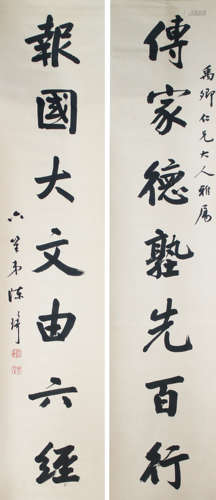 傳家德塾先百行
禹卿仁兄大人雅属
報國大文由六經
弟陳